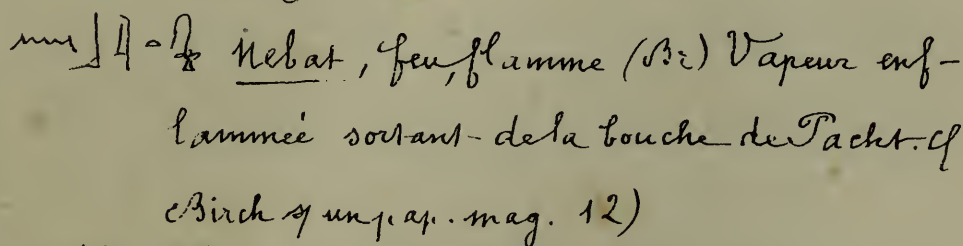 𓈖𓃀𓇋𓏏𓊮 Nebat, feu, flamme (Bi) Vapeur enf-
lammée sortant de la bouche de Pacht. cf
Birch s/ un pap. mag. 12)